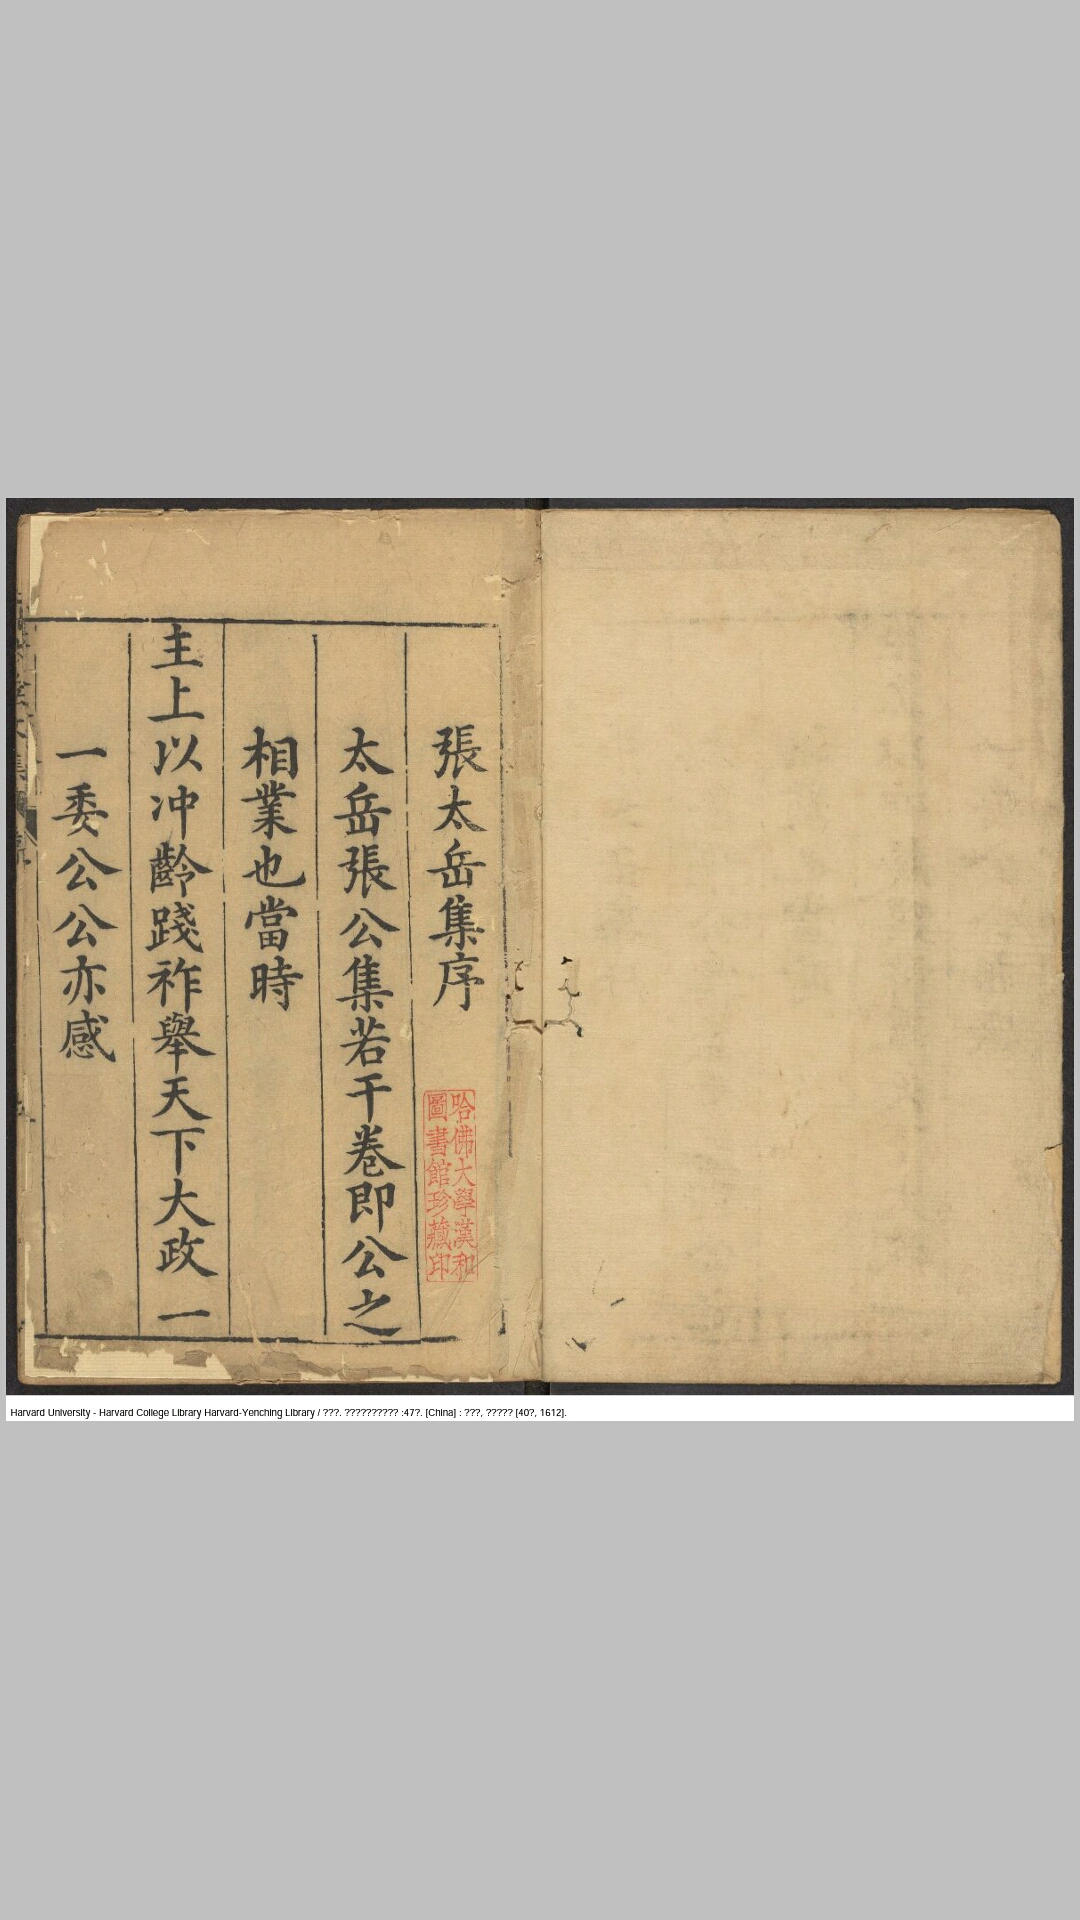 張太岳集序
太岳張公集若干卷即公之
相業也當時
主上以冲齡踐祚舉天下大政一
一委公公亦感
哈佛大學漢和
圖書館珍藏印
Harvard University - Harvard College Library Harvard-Yenching Library / ???. ?????????? :47?. [China] : ???, ????? [40?, 1612].